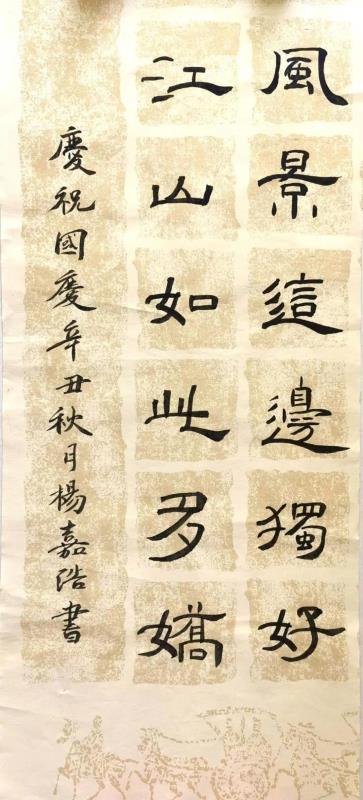 風景這邊獨好
江山如此多嬌
慶祝國慶辛丑秋月楊嘉浩書